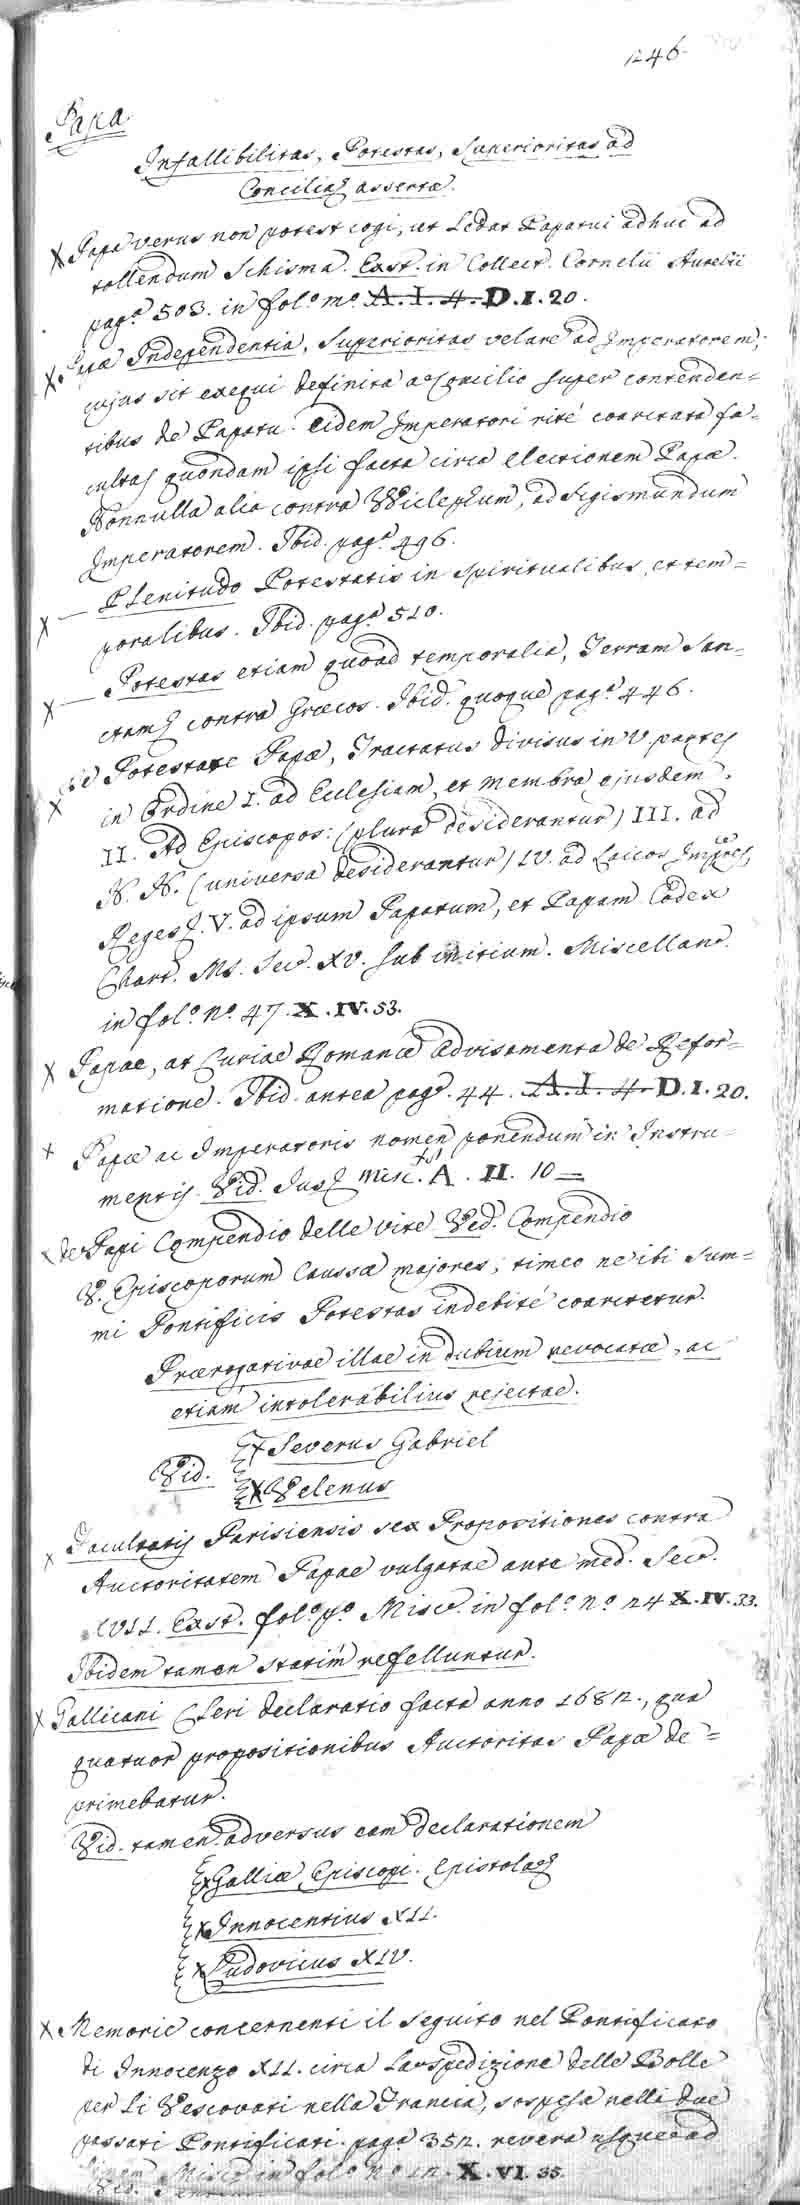 1246.
Papa
Infallibilitas, Potestas, Superioritas ad
Concilia assertæ.
X Papa verus non potest cogi, ut cedat Papatui adhuc ad
tollendum Schisma. Exst. in Collect. Cornelii Aurelii
pag.ᵃ 503. in fol.º mº A. I. 4. D. I. 20.
X Papæ Independentia, Superioritas relatè ad Imperatorem;
cujus sit exequi definita a Concilio super contenden=
tibus de Papatu. Eidem Imperatori ritè coarctata fa=
cultas quondam ipsi facta circa electionem Papæ.
Nonnulla alia contra Wiclephum, ad Sigismundum
Imperatorem. Ibid. pag.ᵃ 496.
X — Plenitudo Potestatis in spiritualibus, et tem=
poralibus. Ibid. pag.ᵃ 510.
X — Potestas etiam quoad temporalia, Terram San=
ctam contra Græcos. Ibid. quoque pag.ᵃ 446.
X De Potestate Papæ, Tractatus divisus in V. partes
in Ordine I. ad Ecclesiam, et membra ejusdem.
II. Ad Episcopos: (plura desiderantur) III. ad
N. N. (universa desiderantur) IV. ad Laicos Imp.ʳᵉˢ,
Reges. V. ad ipsum Papatum, et Papam Codex
Chart. Ms. Sec. XV. sub initium. Miscellan.
in fol.º nº 47. X. IV. 53.
X Papae, ac Curiae Romanæ advisamenta de Refor=
matione. Ibid. antea pag.ᵃ 44. A. I. 4. D. I. 20.
X Papæ ac Imperatoris nomen ponendum in Instru=
mentis. Vid. Jus Misc. A. II. 10 =
X de Papi Compendio delle vite Ved. Compendio
V. Episcoporum Caussæ majores; timeo ne ibi Sum=
mi Pontificis Potestas indebitè coarctetur.
Prærogativae illae in dubium revocatæ, ac
etiam intolerabilius rejectae.
Vid. X Severus Gabriel
X Velenus
X Facultatis Parisiensis sex Propositiones contra
Auctoritatem Papae vulgatae ante med. Sec.
XVII. Exst. fol.º pº Misc. in fol.º nº 24 X. IV. 33.
Ibidem tamen statim refelluntur.
X Gallicani Cleri declaratio facta anno 1682., qua
quatuor propositionibus Auctoritas Papæ de=
primebatur.
Vid. tamen adversus eam declarationem
X Galliæ Episcopi. Epistola
X Innocentius XII.
X Ludovicus XIV.
X Memorie concernenti il seguito nel Pontificato
di Innocenzo XII. circa la spedizione delle Bolle
per li Vescovati nella Francia, sospesa nelli due
passati Pontificati. pag.ᵃ 352. revera usque ad
finem Misc. in fol.º nº 12. X. VI. 35.